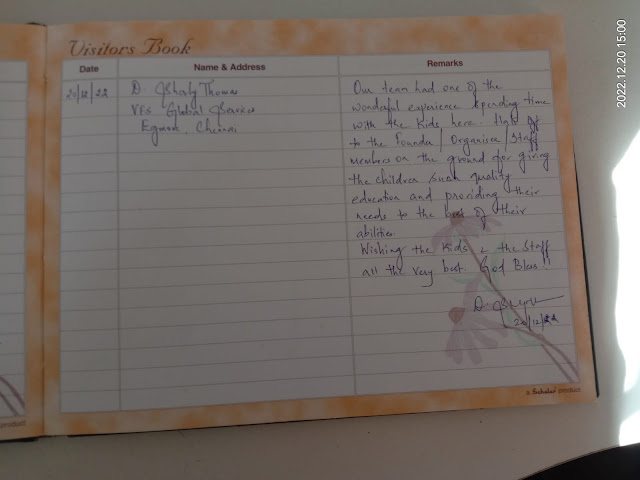 Visitors Book
Date
Name & Address
Remarks
20/12/22
D. Shaly Thomas
VFS Global Services
Egmore, Chennai
Our team had one of the
wonderful experience spending time
with the Kids here. Hats off
to the Founder/ Organiser/ Staff
members on the ground for giving
the children such quality
education and providing their
needs to the best of their
abilities.
Wishing the Kids & the Staff
all the very best God Bless!!
20/12/22
a Scholar product
product
2022.12.20 15:00